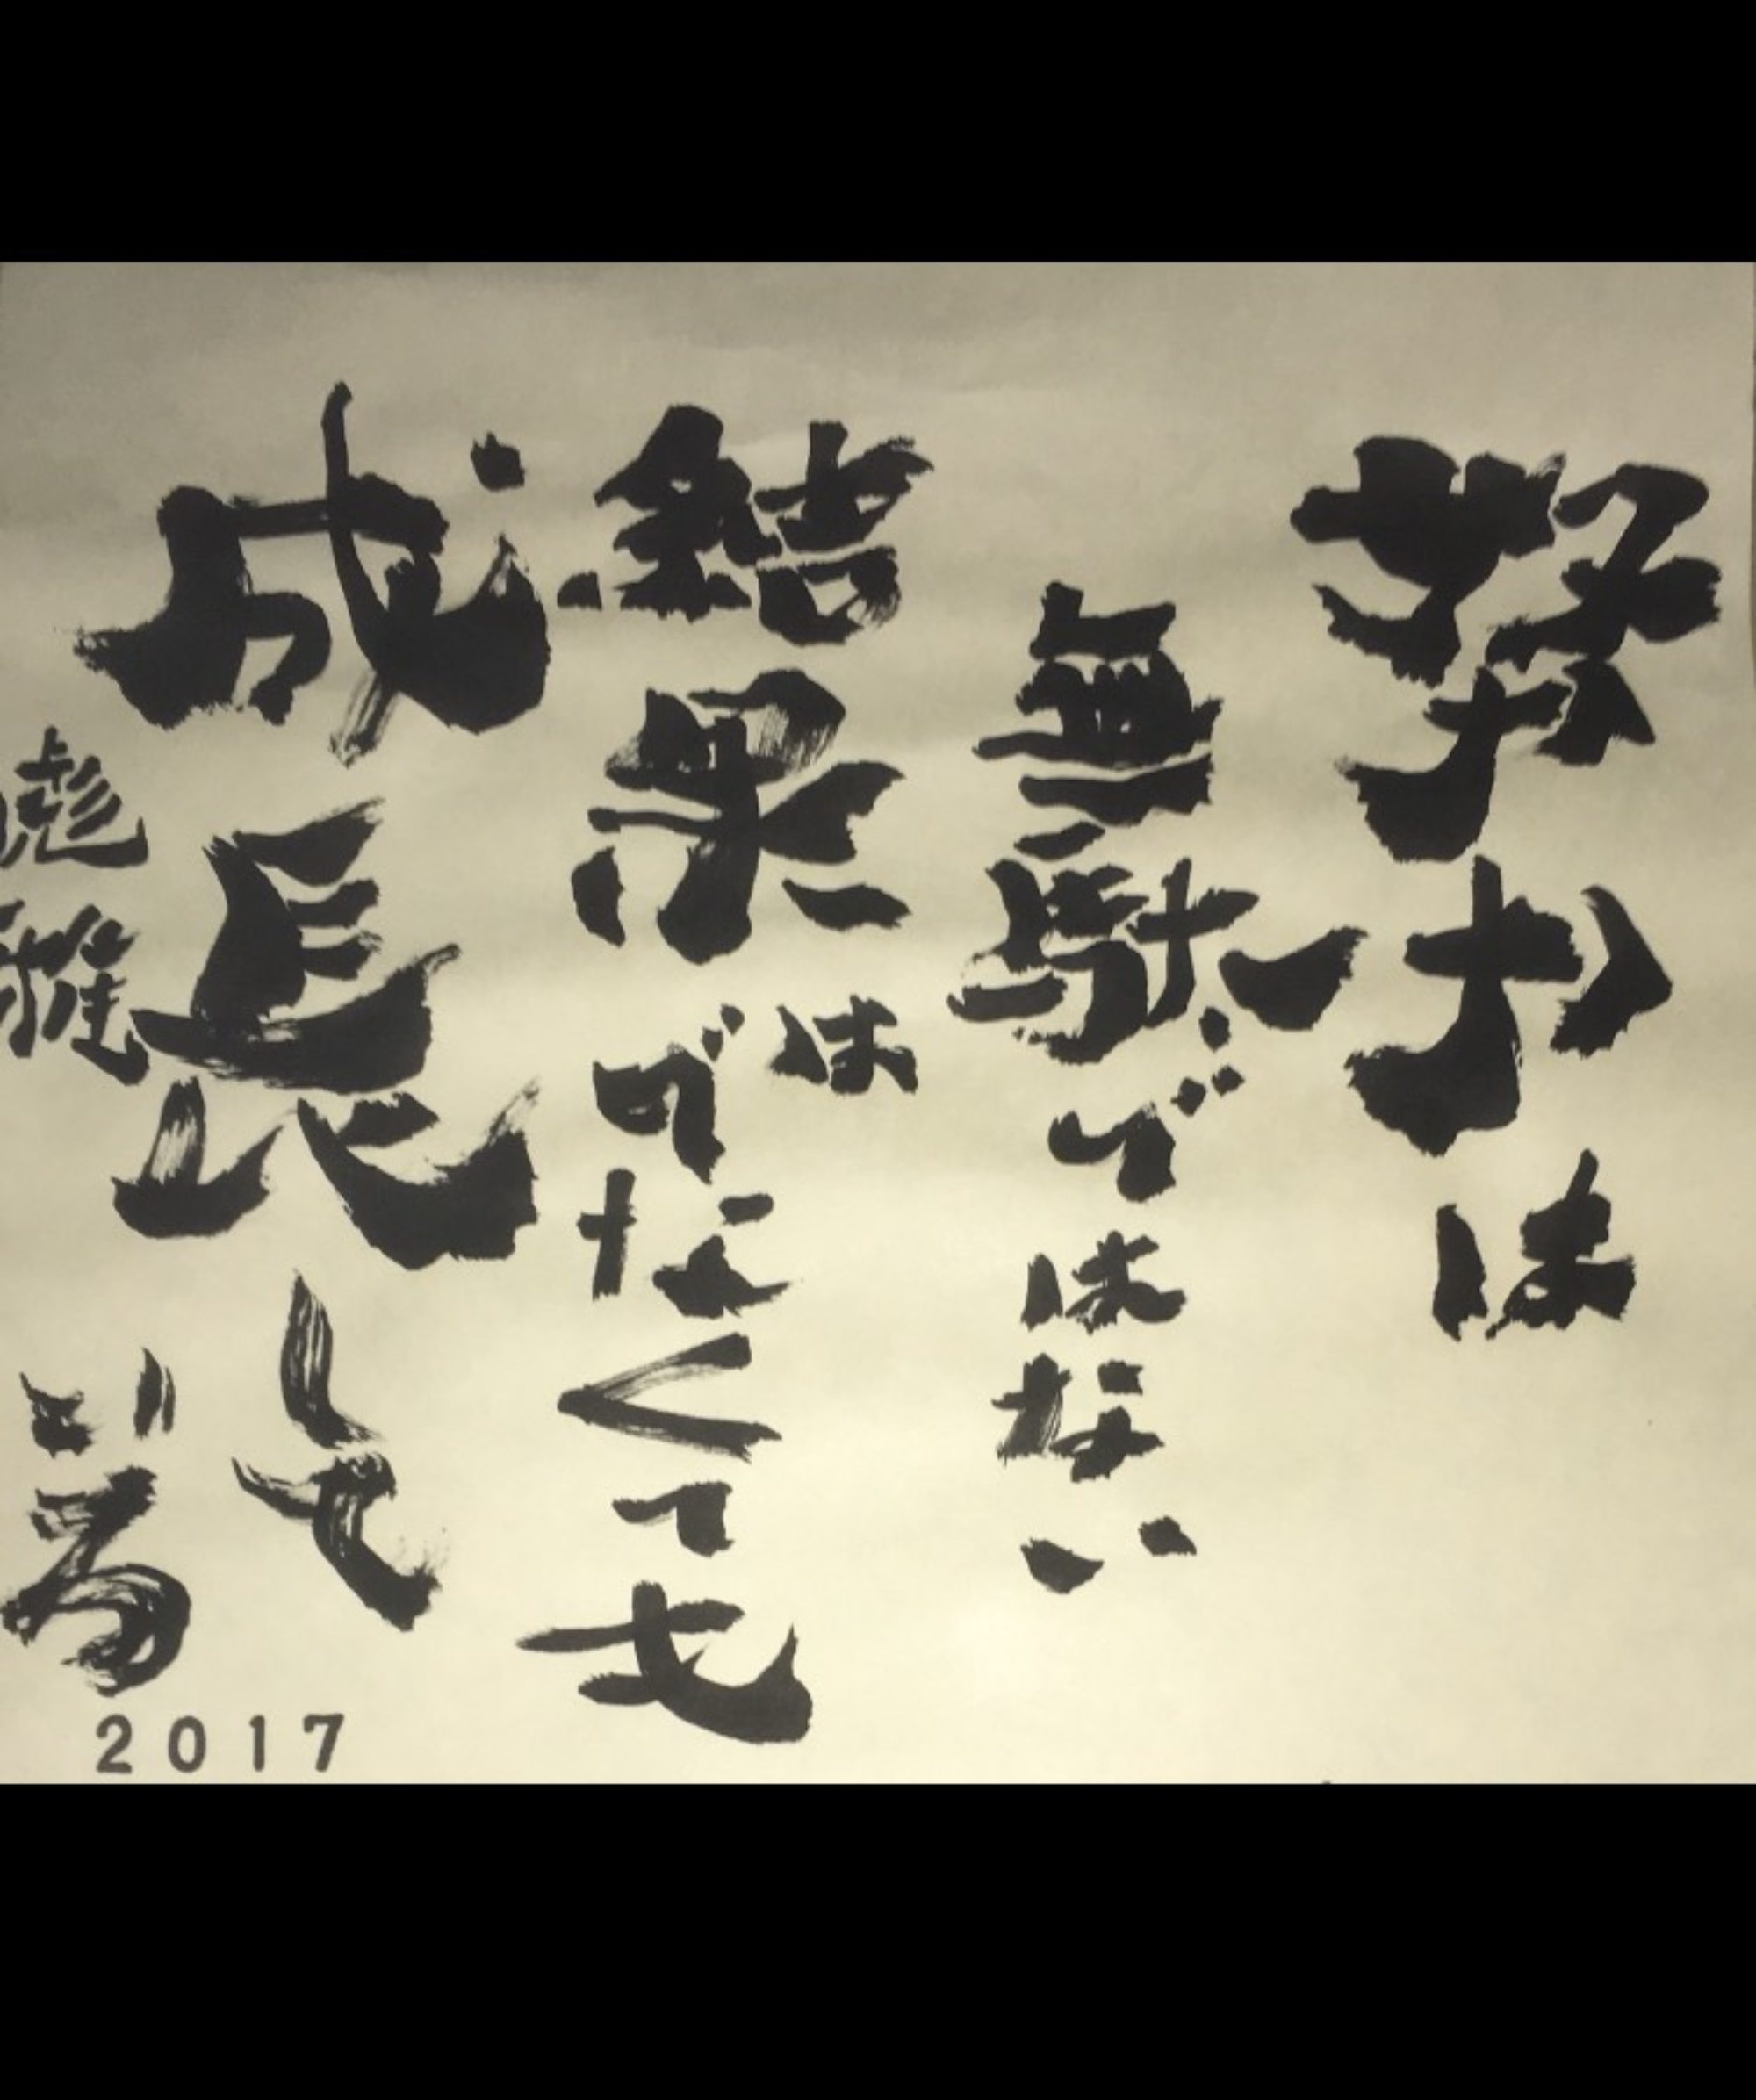 努力は
無駄ではない
結果は
でなくても
成長して
いる
2017